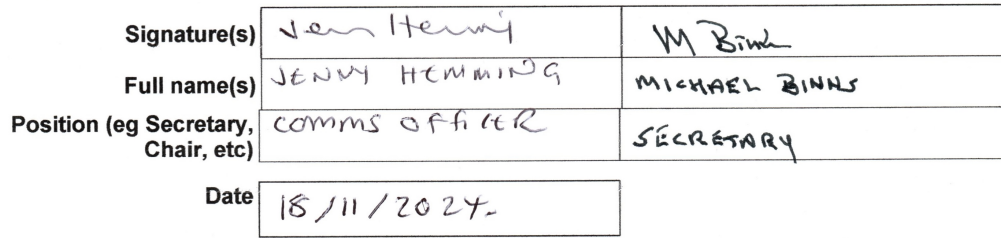 Signature(s) Jen Hemmi M Binn
Full name(s) JENNY HEMMING MICHAEL BINNS
Position (eg Secretary, Chair, etc) COMMS OFFICER SECRETARY
Date 18/11/2024.